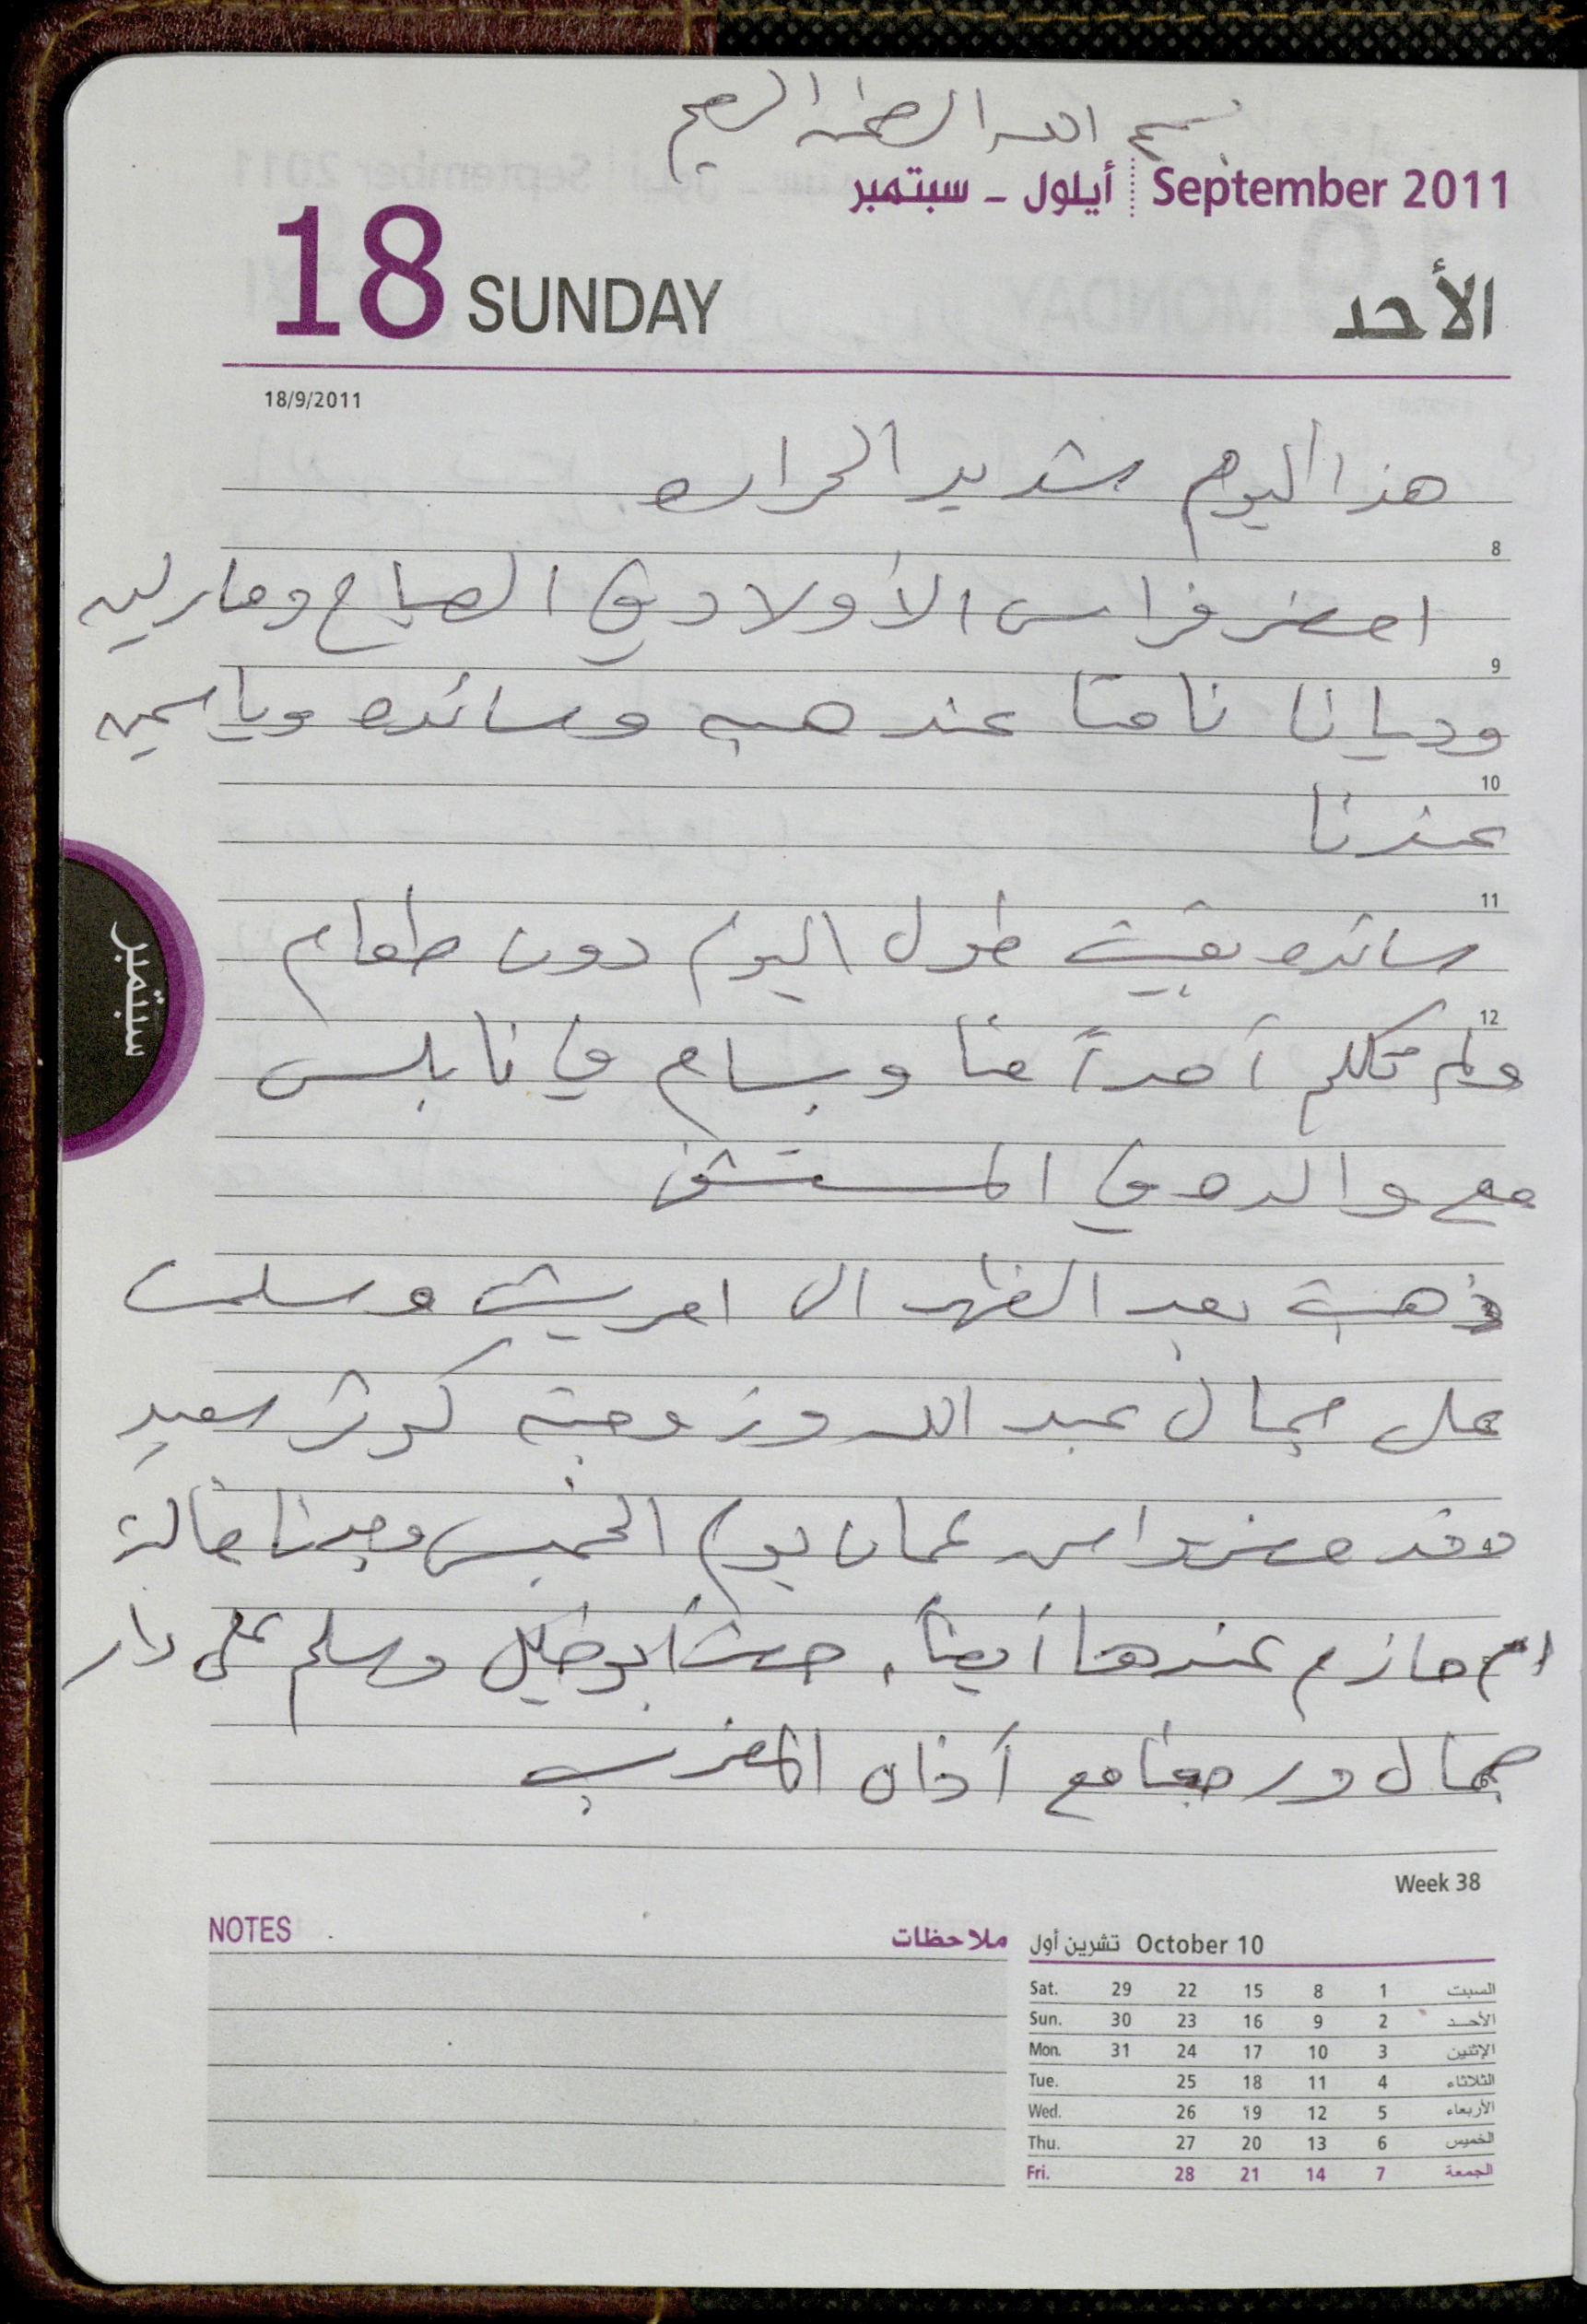 بسم الله الرحمن الرحيم
September 2011 أيلول - سبتمبر
18 SUNDAY الأحد
18/9/2011
هذا اليوم شديد الحراره
8
احضر فراس الأولاد في الصباح ومارلين
9
وديانا نامتا عند هبه وسائده وياسمين
10
عندنا
11
سائده بقيت طول اليوم دون طعام
12
ولم تكلم أحداً منا وبسام في نابلس
مع والده في المستشفى
سبتمبر
ذهبت بعد الظهر الى امريش وسلمت
على جمال عبد الله وزوجته كوثر سعيد
وقد حضروا من عمان يوم الخميس وجدنا خالة
ام حازم عندها أيضاً. أبو خليل وسلم على دار
جمال ورجعنا مع أذان المغرب
Week 38
NOTES ملاحظات
October 10 تشرين أول
Sat. 29 22 15 8 1 السبت
Sun. 30 23 16 9 2 الأحـد
Mon. 31 24 17 10 3 الإثنين
Tue. 25 18 11 4 الثلاثاء
Wed. 26 19 12 5 الأربعاء
Thu. 27 20 13 6 الخميس
Fri. 28 21 14 7 الجمعة